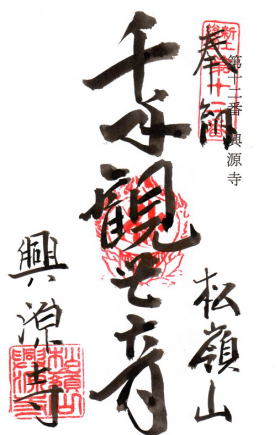 奉納
第十二番 興源寺
松嶺山
千手観世音
興源寺